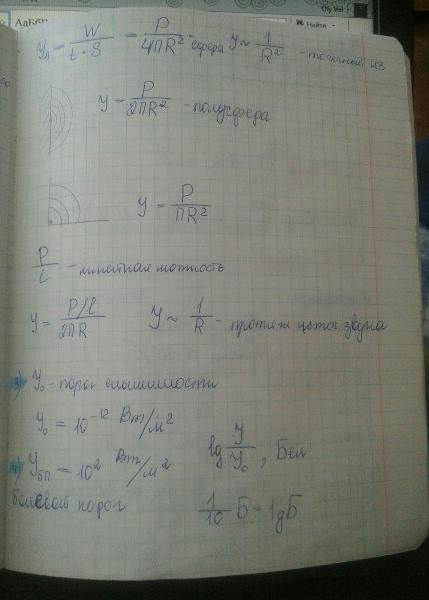 Y = W / t·S = P / 4πR² - сфера Y ~ 1 / R² - точечный из
Y = P / 2πR² - полусфера
Y = P / πR²
P / L - линейная мощность
Y = P/l / 2πR Y ~ 1 / R - протяж звука
3) Y₀ - порог слышимости
Y₀ = 10⁻¹² Вт/м²
lg Y / Y₀, Бел
4) Yбп = 10² Вт/м²
болевой порог
1 / 10 Б = 1дБ